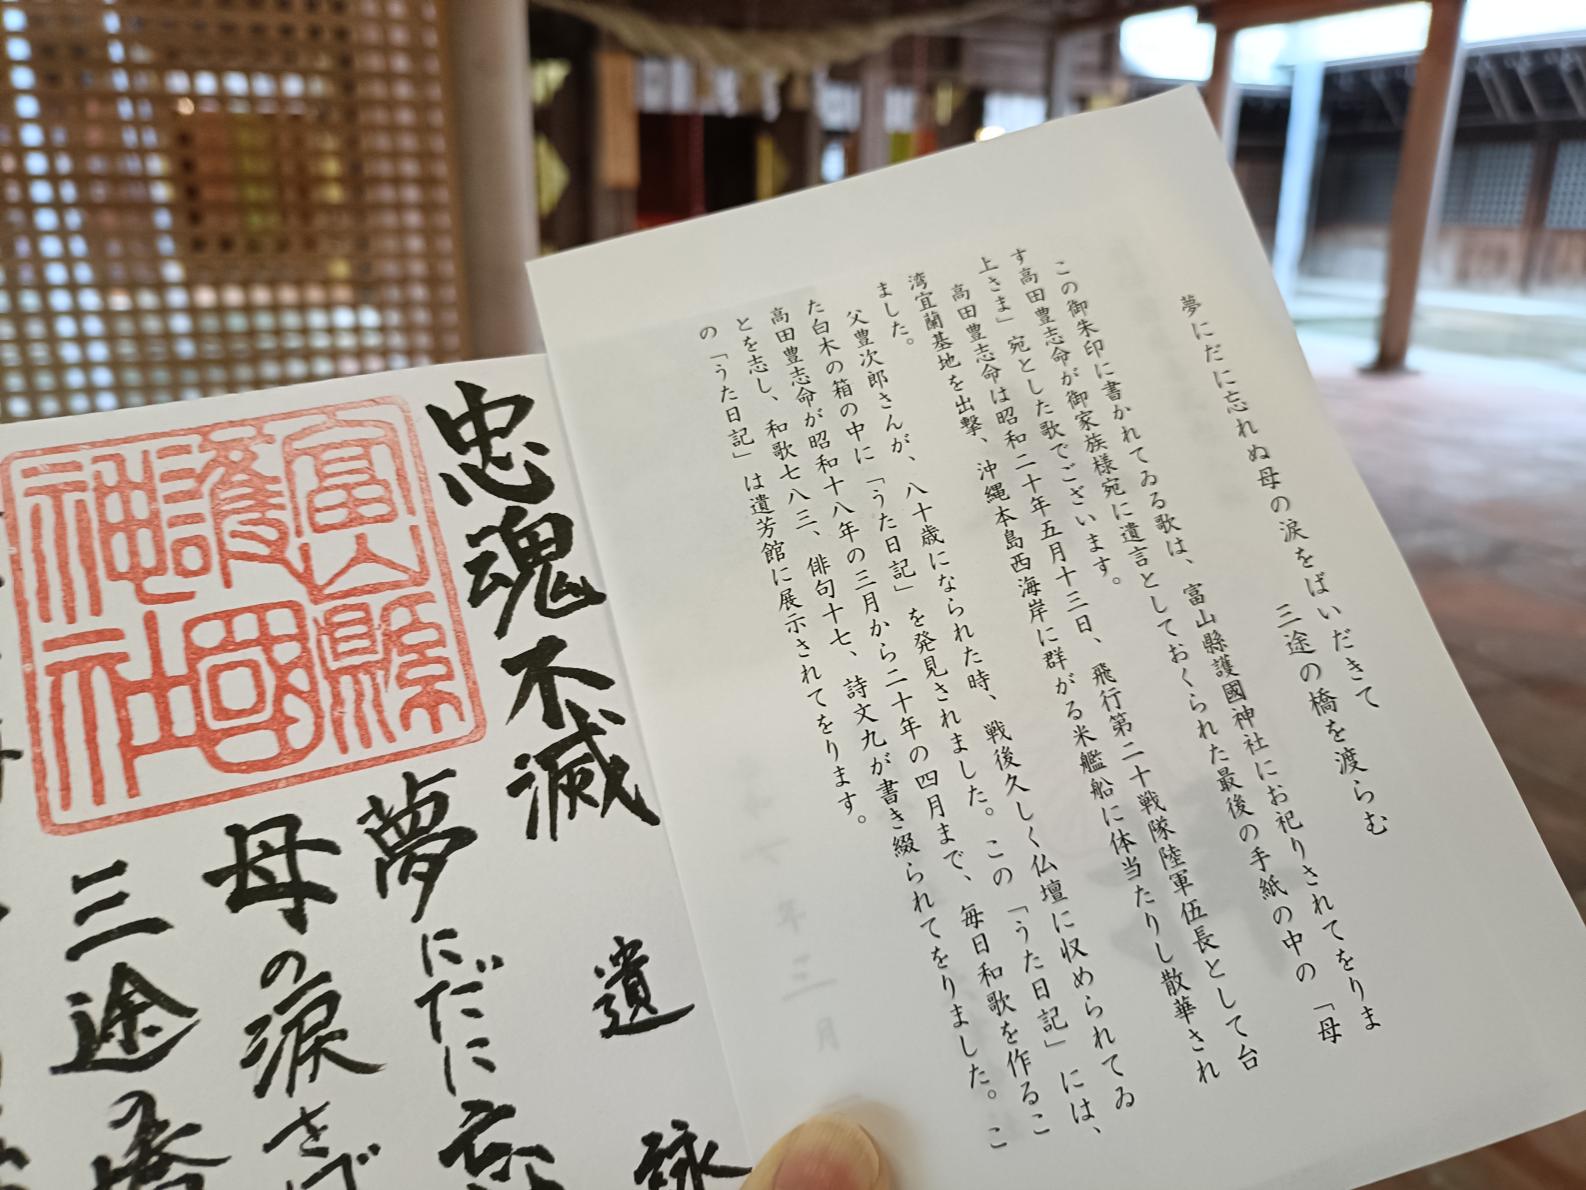 夢にだに忘れぬ母の涙をばいだきて
三途の橋を渡らむ
この御朱印に書かれてゐる歌は、富山縣護國神社にお祀りされてをりま
す高田豊志命が御家族様宛に遺言としておくられた最後の手紙の中の「母
上さま」宛とした歌でございます。
高田豊志命は昭和二十年五月十三日、飛行第二十戦隊陸軍伍長として台
湾宜蘭基地を出撃、沖縄本島西海岸に群がる米艦船に体当たりし散華され
ました。
父豊次郎さんが、八十歳になられた時、戦後久しく仏壇に収められてゐ
た白木の箱の中に「うた日記」を発見されました。この「うた日記」には、
高田豊志命が昭和十八年の三月から二十年の四月まで、毎日和歌を作るこ
とを志し、和歌七八三、俳句十七、詩文九が書き綴られてをりました。こ
の「うた日記」は遺芳館に展示されてをります。
忠魂不滅
遺詠
夢にだに忘
母の涙をば
三途の橋
富山縣護國神社